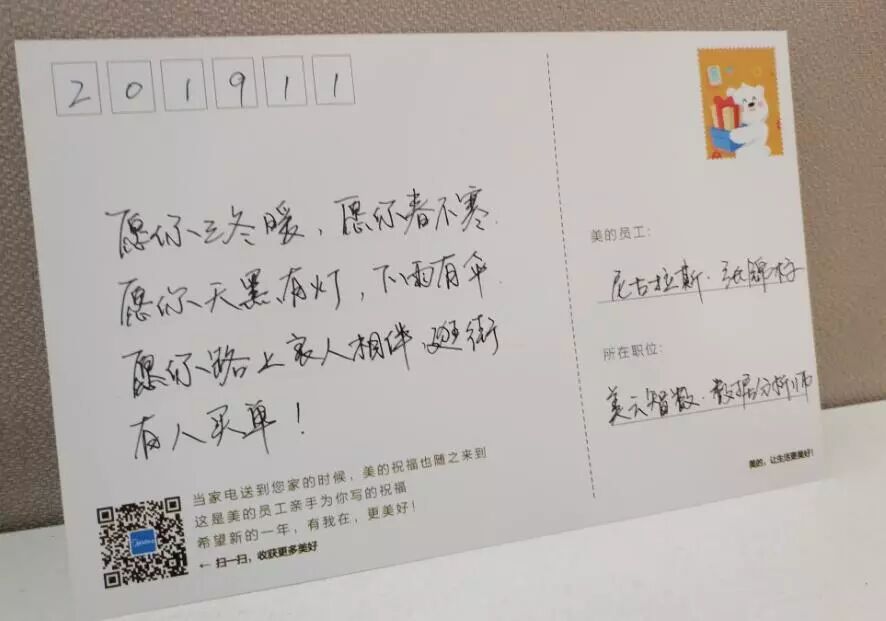 201911
愿你三冬暖，愿你春不寒.
愿你天黑有灯，下雨有伞.
愿你路上良人相伴.逛街
有人买单！
当家电送到您家的时候，美的祝福也随之来到
这是美的员工亲手为你写的祝福
希望新的一年，有我在，更美好！
← 扫一扫，收获更多美好
美的员工：
尼古拉斯·张锦梓
所在职位：
美云智数·数据分析师
美的，让生活更美好！